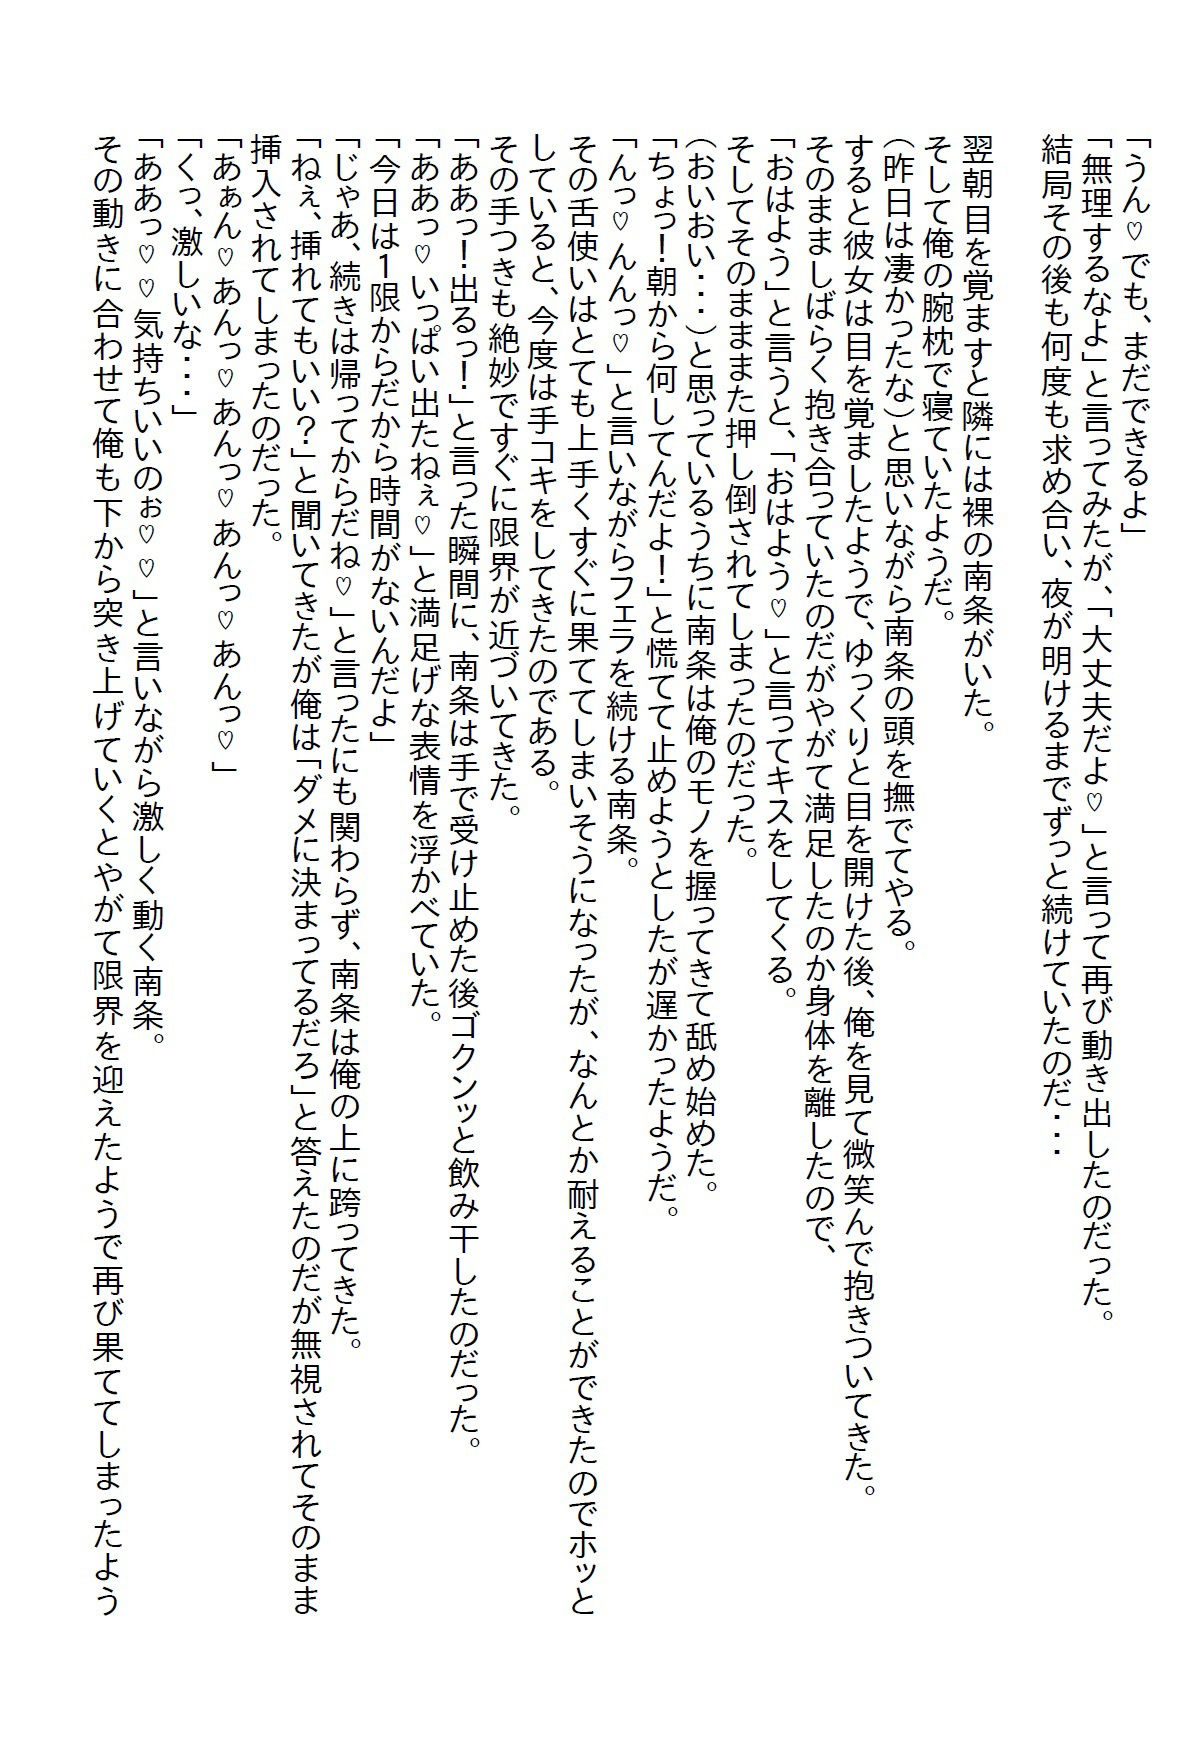 「うん♡でも、まだできるよ」
「無理するなよ」と言ってみたが、「大丈夫だよ♡」と言って再び動き出したのだった。
結局その後も何度も求め合い、夜が明けるまでずっと続けていたのだ・・・
翌朝目を覚ますと隣には裸の南条がいた。
そして俺の腕枕で寝ていたようだ。
（昨日は凄かったな）と思いながら南条の頭を撫でてやる。
すると彼女は目を覚ましたようで、ゆっくりと目を開けた後、俺を見て微笑んで抱きついてきた。
そのまましばらく抱き合っていたのだがやがて満足したのか身体を離したので、
「おはよう」と言うと、「おはよう♡」と言ってキスをしてくる。
そしてそのまままた押し倒されてしまったのだった。
（おいおい・・・）と思っているうちに南条は俺のモノを握ってきて舐め始めた。
「ちょっ！朝から何してんだよ！」と慌てて止めようとしたが遅かったようだ。
「んっ♡んんっ♡」と言いながらフェラを続ける南条。
その舌使いはとても上手くすぐに果ててしまいそうになったが、なんとか耐えることができたのでホッと
していると、今度は手コキをしてきたのである。
その手つきも絶妙ですぐに限界が近づいてきた。
「ああっ！出るっ！」と言った瞬間に、南条は手で受け止めた後ゴクンッと飲み干したのだった。
「ああっ♡いっぱい出たねぇ♡」と満足げな表情を浮かべていた。
「今日は1限からだから時間がないんだよ」
「じゃあ、続きは帰ってからだね♡」と言ったにも関わらず、南条は俺の上に跨ってきた。
「ねぇ、挿れてもいい？」と聞いてきたが俺は「ダメに決まってるだろ」と答えたのだが無視されてそのまま
挿入されてしまったのだった。
「あぁん♡あんっ♡あんっ♡あんっ♡あんっ♡」
「くっ、激しいな・・・」
「ああっ♡♡気持ちいいのぉ♡♡」と言いながら激しく動く南条。
その動きに合わせて俺も下から突き上げていくとやがて限界を迎えたようで再び果ててしまったよう